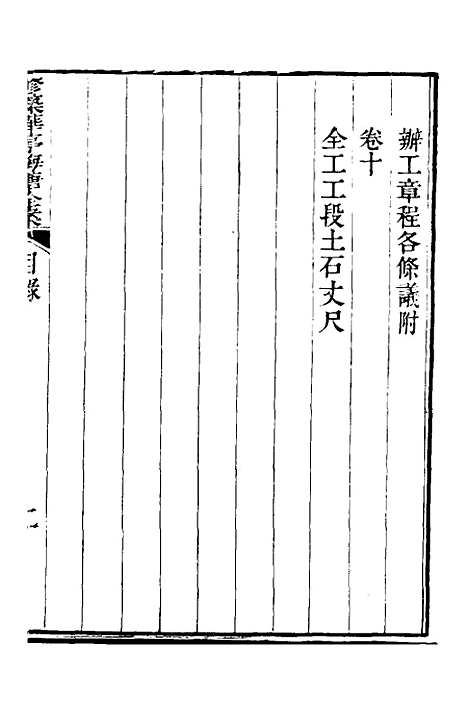 辦工章程各條議附
卷十
全工工段土石丈尺
目錄
二